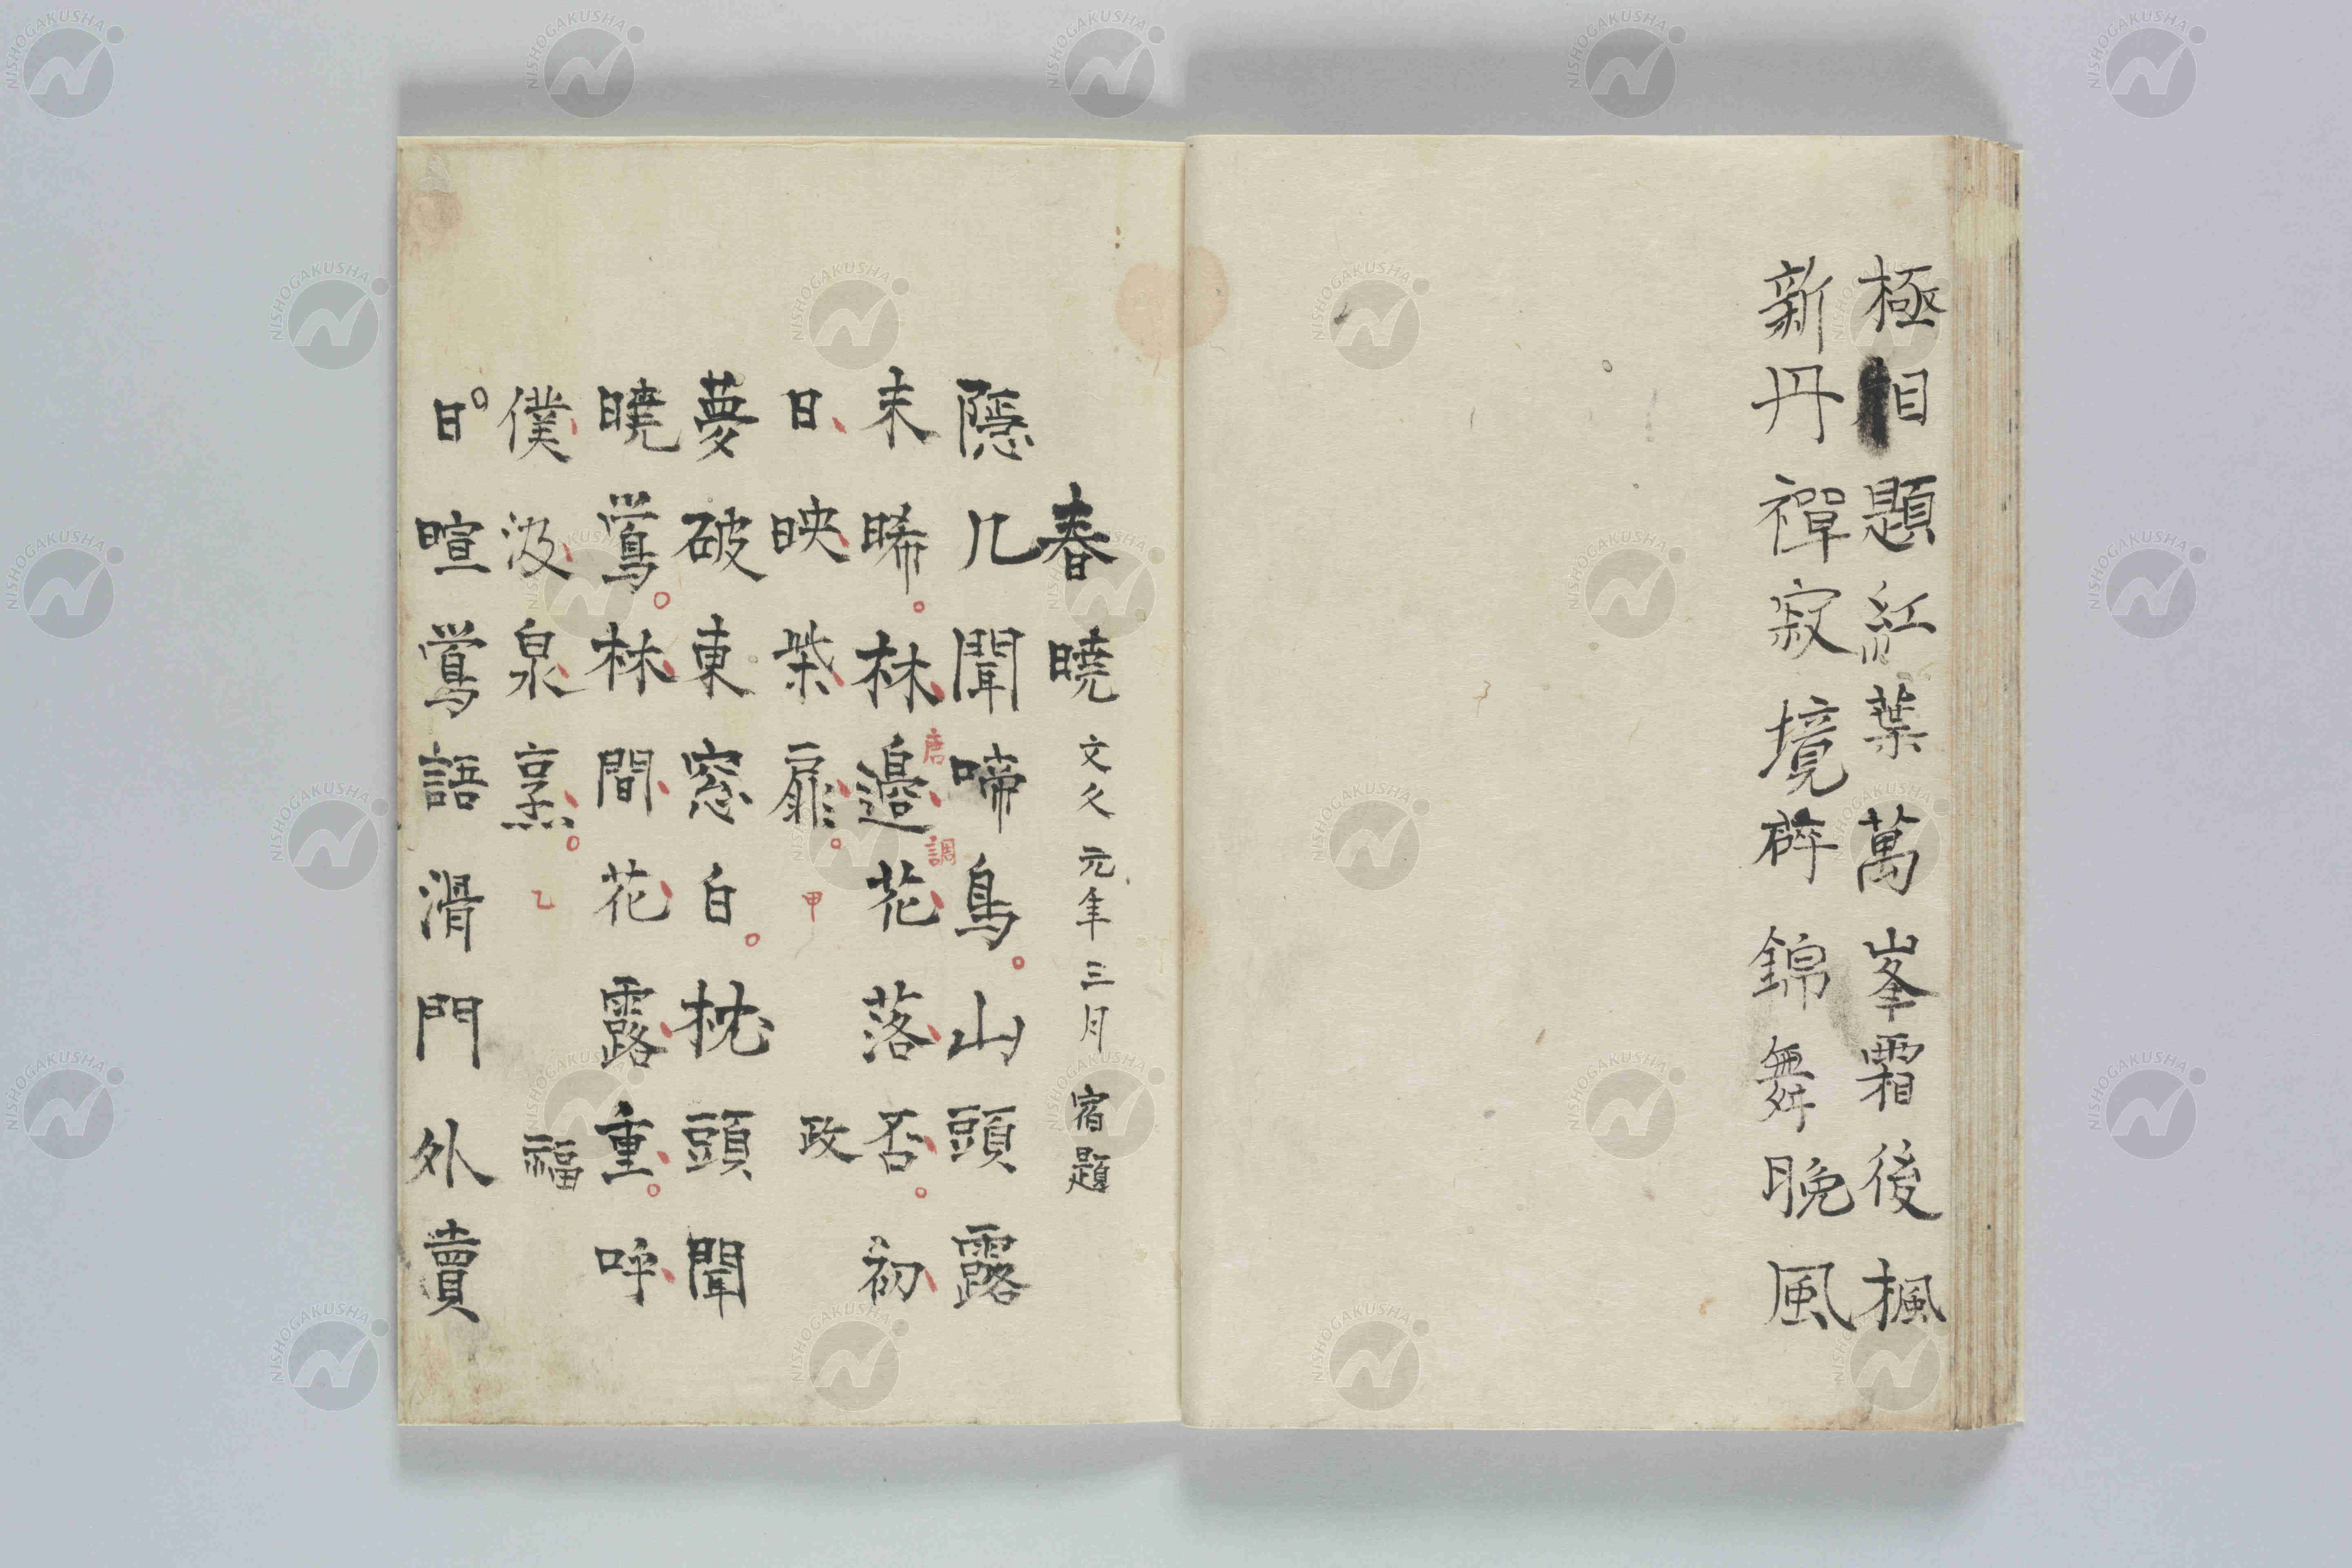 極目題紅葉萬峯霜後楓
新丹禪寂境碎錦舞晚風
春曉 文久元年三月 宿題
隱几聞啼鳥。山頭露
未晞。林邉花落否。初
唐調
日映柴扉。 甲 政
夢破東窓白。枕頭聞
曉鶯。林間花露重。呼
僕汲泉烹。 乙 福
日暄鶯語滑門外賣
NISHOGAKUSHA